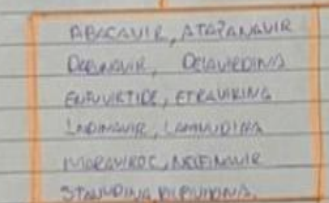 ABACAVIR, ATAZANAVIR
DARUNAVIR, DELAVIRDINA
ENFUVIRTIDE, ETRAVIRINA
INDINAVIR, LAMIVUDINA
MARAVIROC, NELFINAVIR
STAVUDINA, RILPIVIRINA.